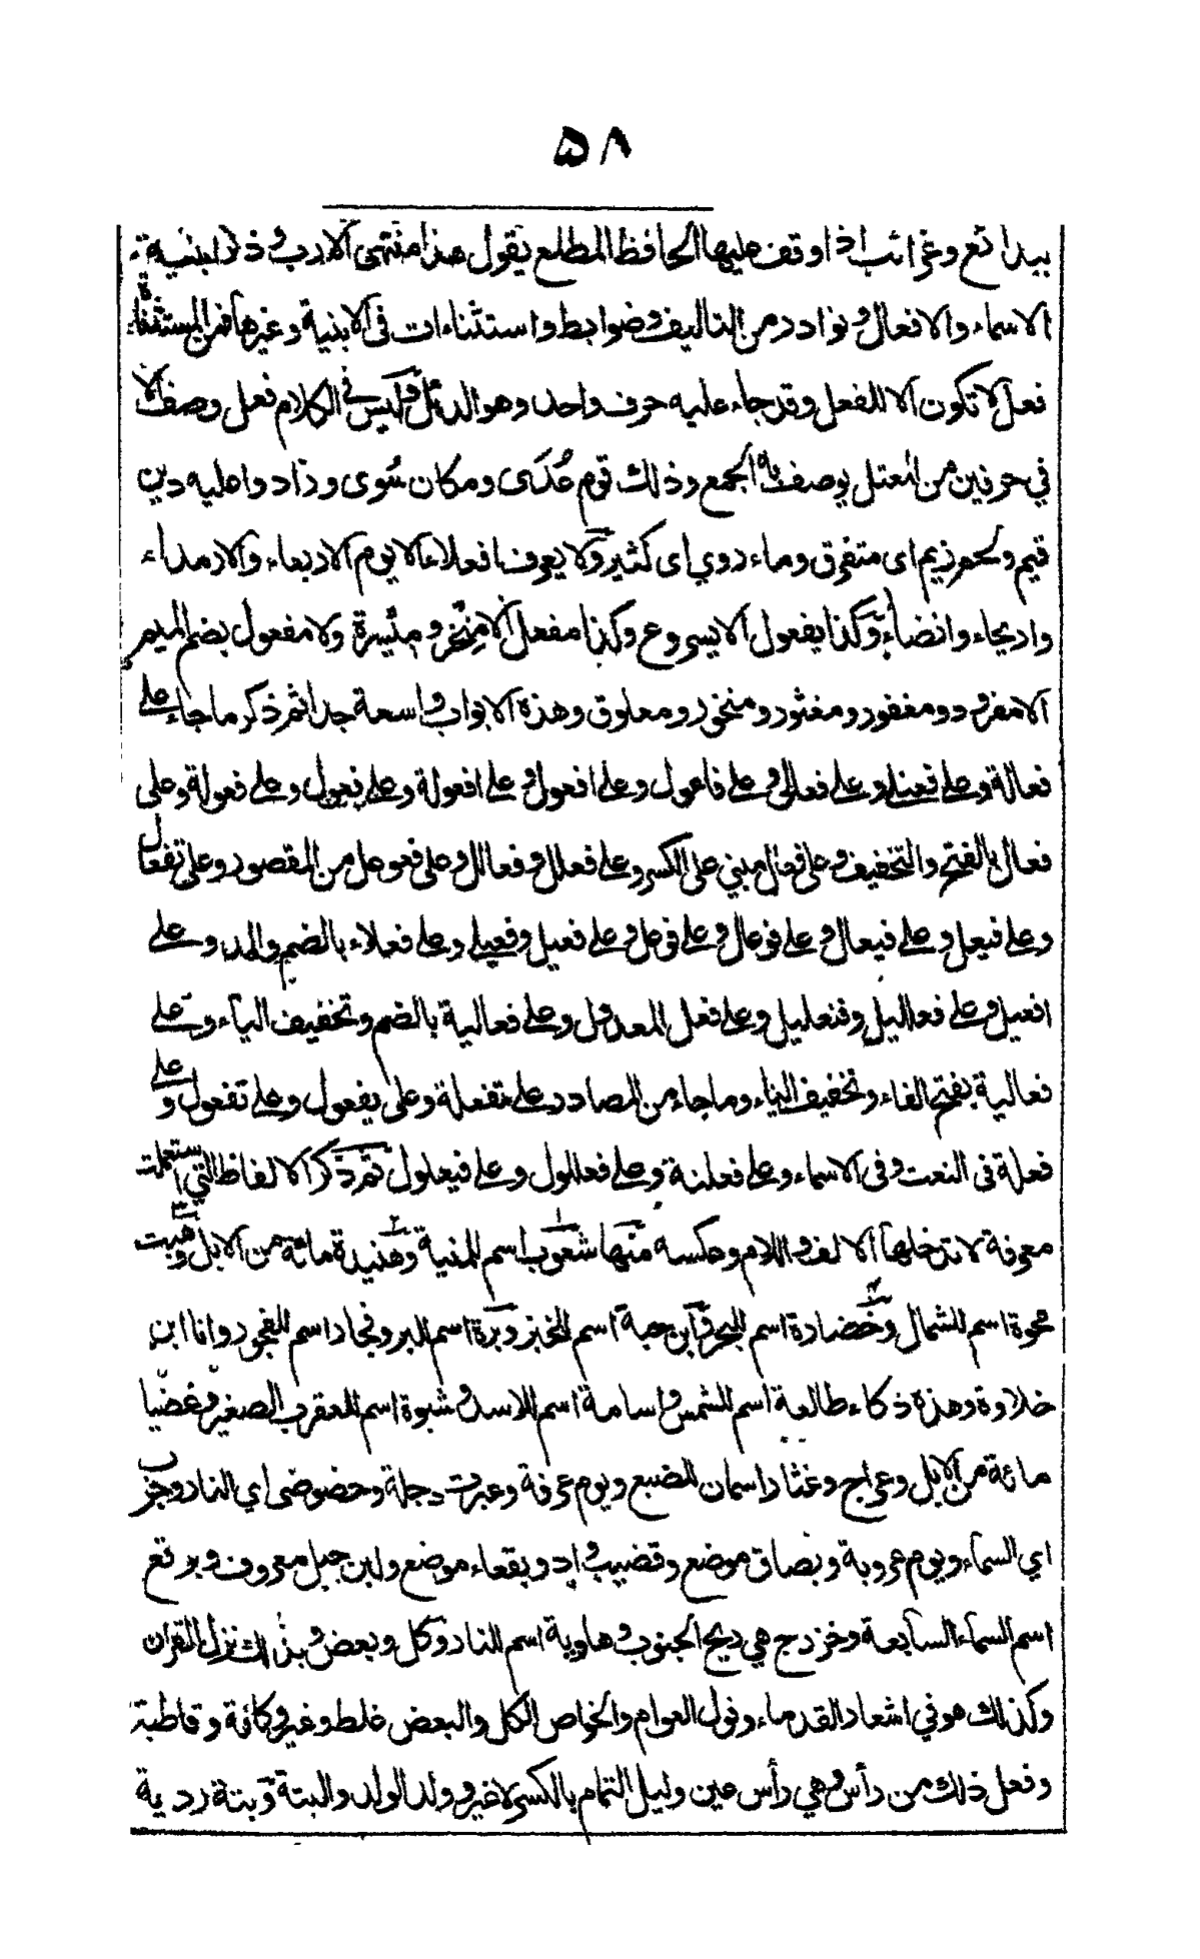 ۵۸
ببدائع وغرائب اذا وقف عليها الحافظ المطلع يقول هذا منتهى الارب وذكر ابنية
الاسماء والافعال ونوادر من التاليف وضوابط واستثناءات فى الابنية وغيرها فمن المستثناة
فعل لا تكون الا للفعل وقد جاء عليه حرف واحد وهو الدئل وليس فى الكلام فعل وصفا الا
في حرفين من المعتل يوصف به الجمع وذلك قوم عدى ومكان سُوى وزاد واعليه دين
قيم ولحم زيم اى متفرق وماء روي اى كثير ولا يعرف افعلاء الا يوم الاربعاء والارمداء
واريحاء وانصباء وكذا يفعول الا يسروع وكذا مفعل الا منخر و مئسرة ولا مفعول بضم الميم
الا مغرود ومغفور ومغثور ومنخور ومعلوق وهذه الابواب واسعة جدا ثم ذكر ماجاء على
فعالة وعلى فعنلى وعلى فعالى وعلى فاعول وعلى افعول وعلى افعولة وعلى يفعول وعلى فعولة وعلى
فعال بالفتح والتخفيف وعلى فعال مبني على الكسر وعلى فعلل وفعالل وعلى فوعل من المقصور وعلى تفعال
وعلى فيعل وعلى فيعال وعلى فوعال وعلى فوعل وعلى فعيل وفعيلى وعلى فعلاء بالضم والمد وعلى
افعيل وعلى فعاليل وفنعليل وعلى فعل المعدول وعلى فعالية بالضم وتخفيف الياء وعلى
فعالية بفتح الفاء وتخفيف الياء وماجاء من المصادر على تفعلة وعلى يفعول وعلى تفعول وعلى
فعلة فى النعت وفى الاسماء وعلى فعلنة وعلى فعلول وعلى فيعلول ثم ذكر الالفاظ التي استعملت
معرفة لا تدخلها الالف واللام وعكسه منها شعوب اسم للمنية وهنيدة مائة من الابل وهبت
محوة اسم للشمال وخضارة اسم للبحر وابن حبة اسم للخبز وبرة اسم البر وفجار اسم للفجور وانا ابن
خلاوة وهذه ذكاء طالعة اسم للشمس واسامة اسم للاسد وشبوة اسم للعقرب الصغير وغضيا
مائة من الابل وعراج وغثار اسمان للضبع ويوم عرفة وعبرت دجلة وحضوضى اي النار وجرب
اي السماء ويوم عروبة وبصاق موضع وقضيب واد وبقعاء موضع ولبن جبل معروف وبرقع
اسم السماء السابعة وخزرج هي ريح الجنوب وهاوية اسم النار وكل وبعض وبذلك نزل القران
وكذلك هو في اشعار القدماء وقول العوام والخواص الكل والبعض غلط وغير وكافة وقاطبة
وفعل ذلك من رأس وهي رأس عين وليل التمام بالكسر لا غير وولد الولد والبتة وبتة ردية